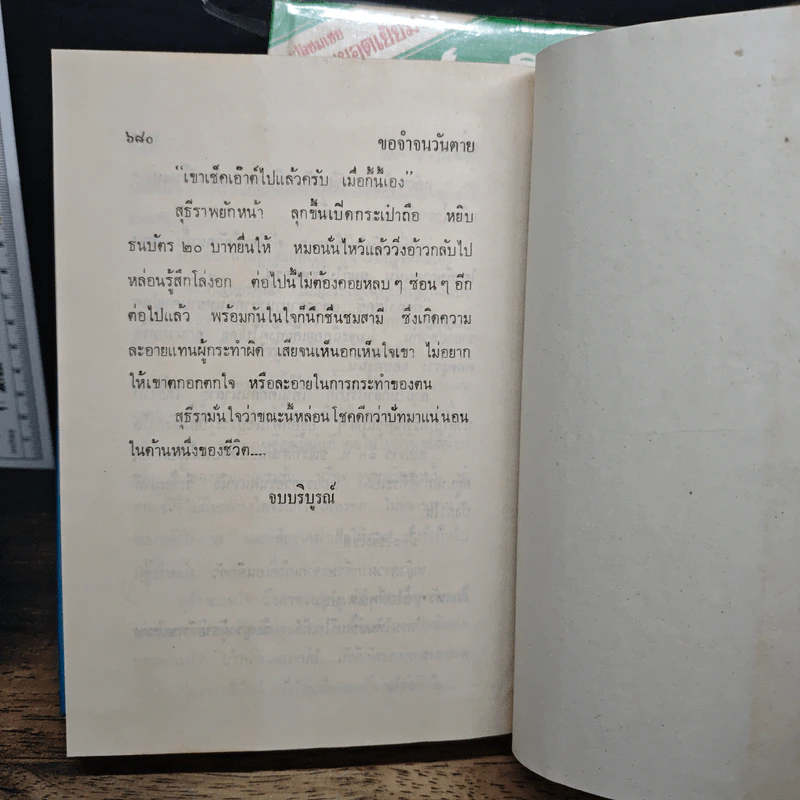 ๖๘๐
ขอจำจนวันตาย
"เขาเช็คเอ๊าต์ไปแล้วครับ เมื่อกี้นี้เอง"
สุธีราพยักหน้า ลุกขึ้นเปิดกระเป๋าถือ หยิบ
ธนบัตร ๒๐ บาทยื่นให้ หมอนั่นไหว้แล้ววิ่งอ้าวกลับไป
หล่อนรู้สึกโล่งอก ต่อไปนี้ไม่ต้องคอยหลบ ๆ ซ่อน ๆ อีก
ต่อไปแล้ว พร้อมกันในใจก็นึกชื่นชมสามี ซึ่งเกิดความ
ละอายแทนผู้กระทำผิด เสียจนเห็นอกเห็นใจเขา ไม่อยาก
ให้เขาตกอกตกใจ หรือละอายในการกระทำของตน
สุธีรามั่นใจว่าขณะนี้หล่อนโชคดีกว่าปัทมาแน่นอน
ในด้านหนึ่งของชีวิต.....
จบบริบูรณ์